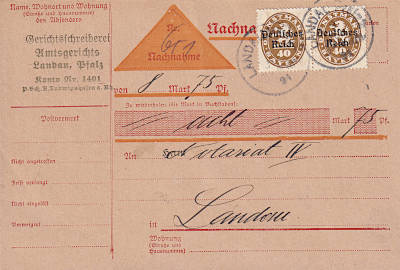 Name, Wohnort und Wohnung
(Straße und Hausnummer)
des Absenders
Gerichtsschreiberei
Amtsgerichts
Landau, Pfalz
Konto Nr. 1401
Nr.
601
Nachnahme
Nachna
Deutsches Reich
40
Deutsches Reich
40
LANDAU
von 8 Mark 75 Pf.
Zu wiederholen die Mark in Buchstaben:
acht Mark 75 Pf.
Postvermerk
Nicht angetroffen
Reise verlangt
Nicht eingelöst
Verweigert
An Notariat IV
in Landau
Wohnung
(Straße und
Hausnummer)